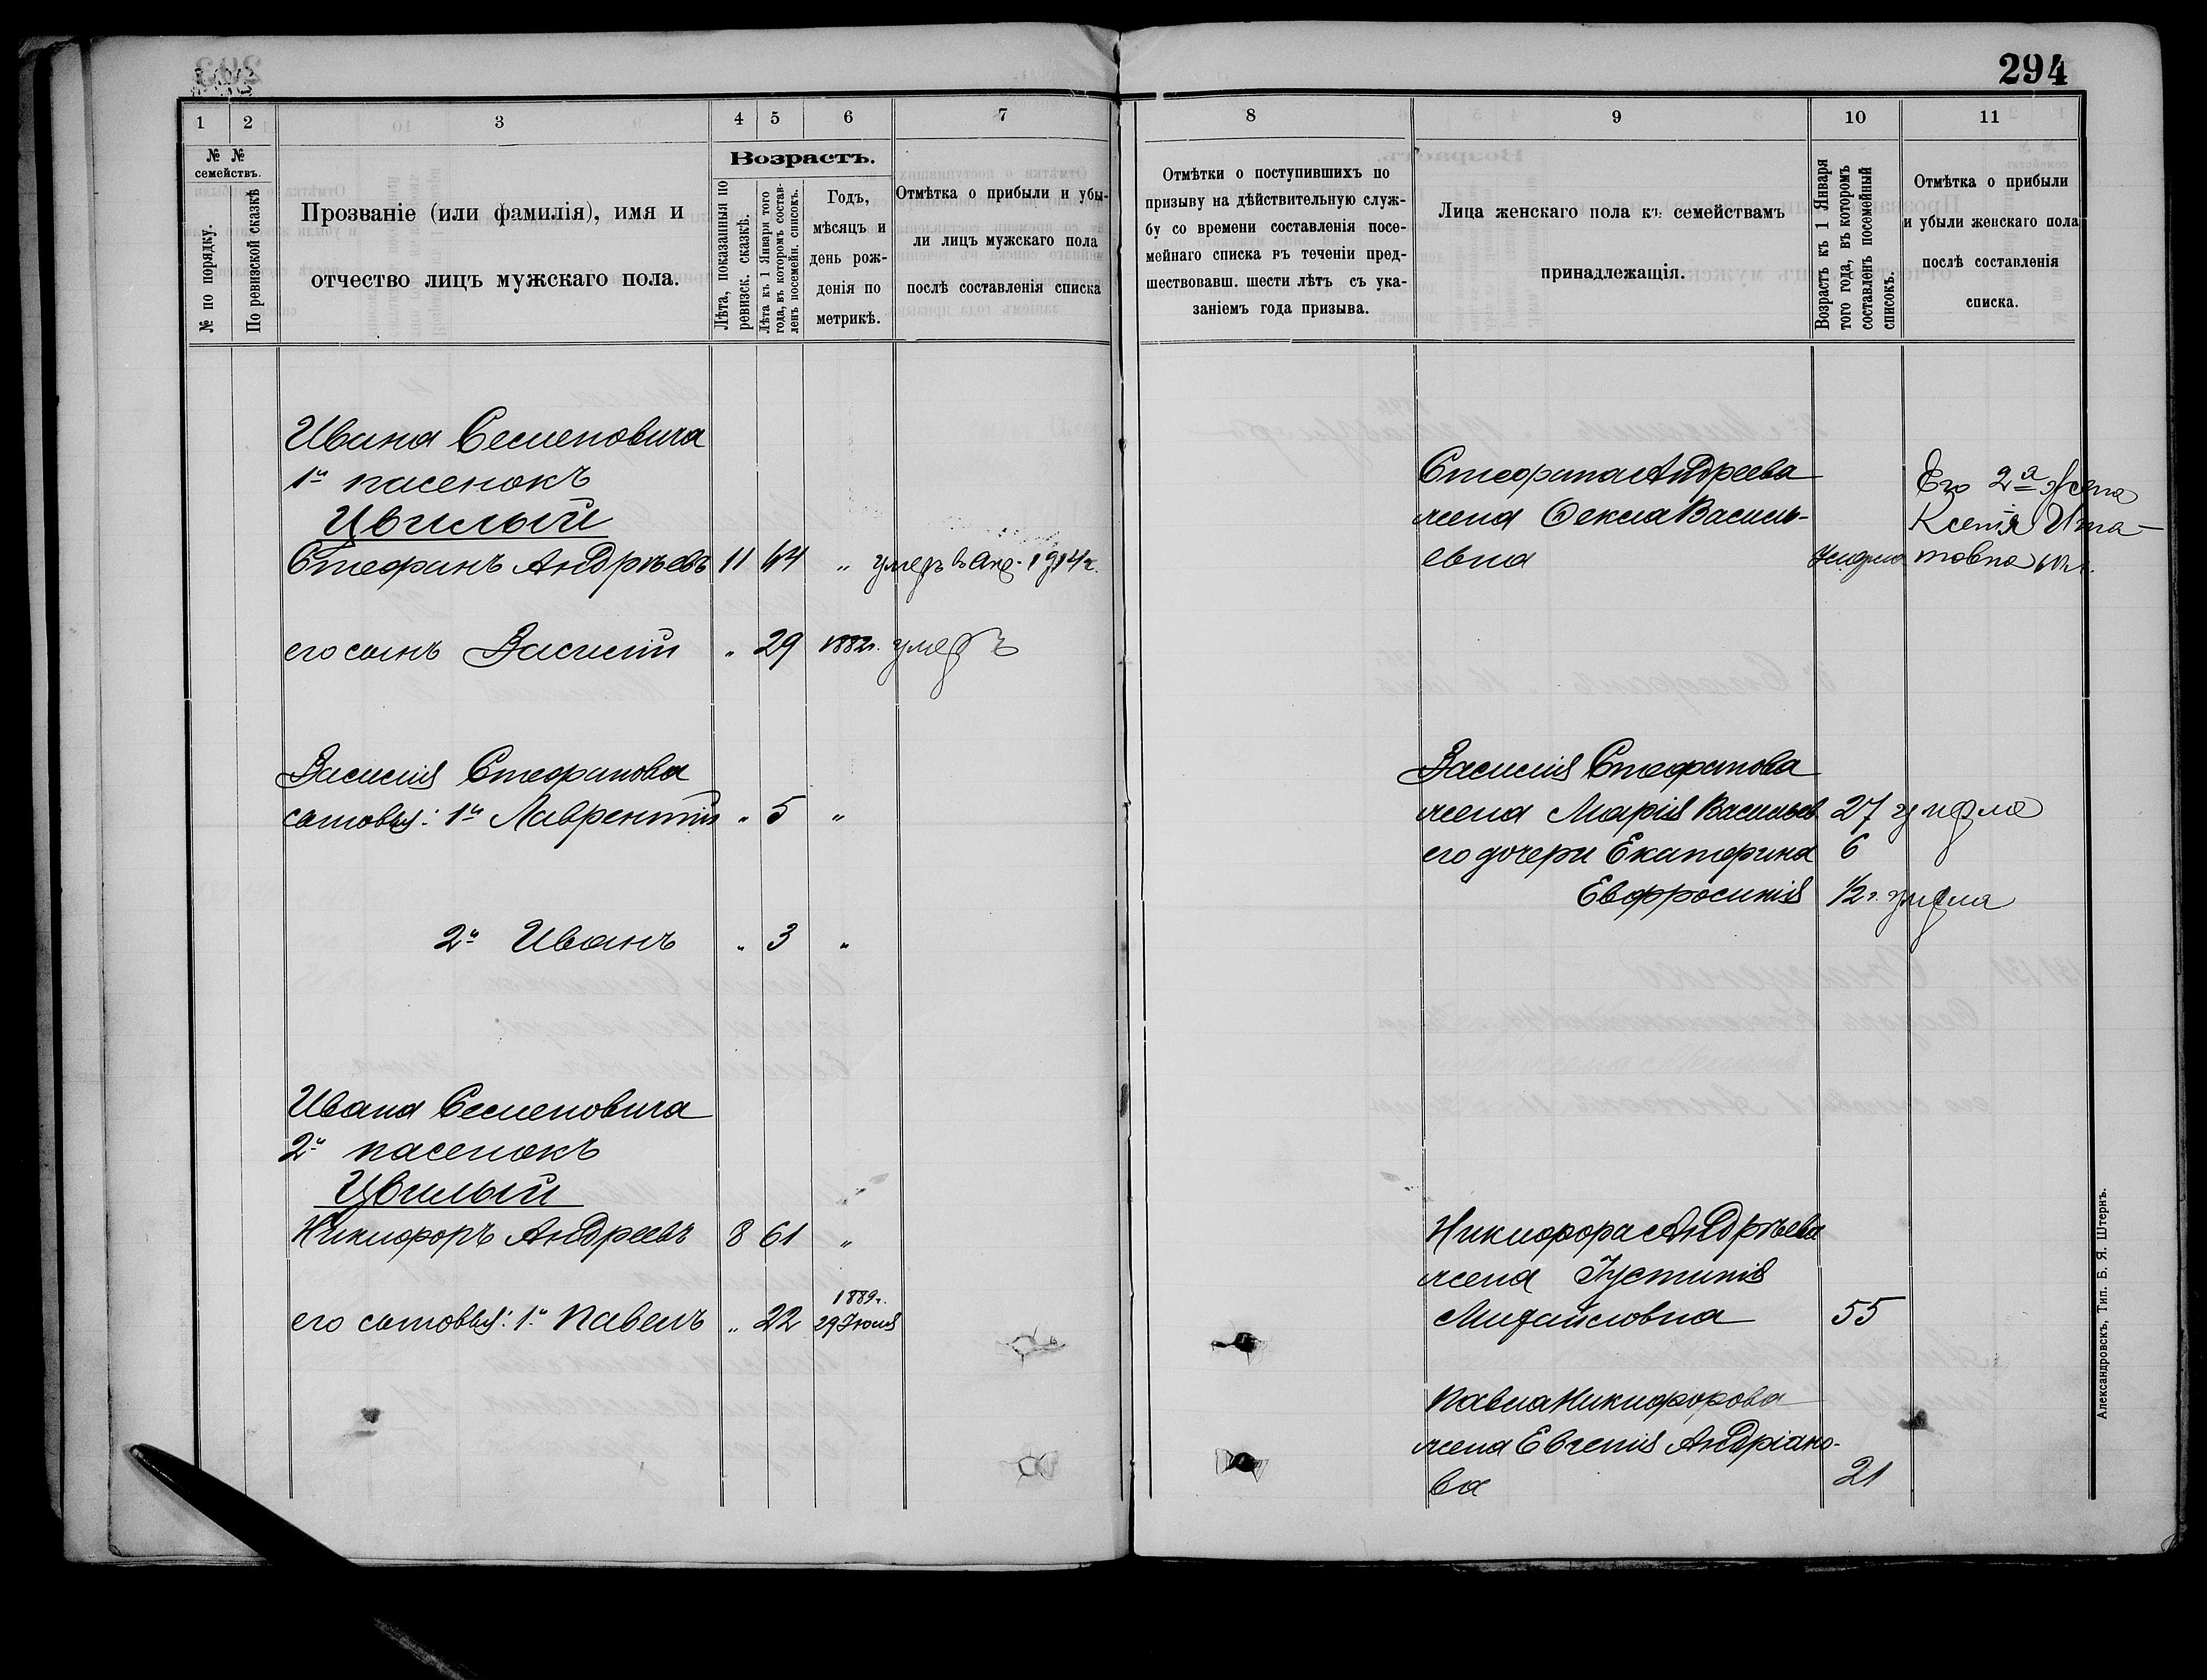 294
1 2 3 4 5 6 7
№ №
семействъ.
№ по порядку.
По ревизской сказкѣ
Прозваніе (или фамилія), имя и
отчество лицъ мужскаго пола.
Возрастъ.
Лѣта, показанныя по
ревизск. сказкѣ.
Лѣта къ 1 Января того
года, въ которомъ состав-
ленъ посемейн. списокъ.
Годъ,
мѣсяцъ и
день рож-
денія по
метрикѣ.
Отмѣтка о прибыли и убы-
ли лицъ мужскаго пола
послѣ составленія списка
Ивана Семеновича
1й пасенокъ
Цвилый
Стефанъ Андрѣевъ 11 64 " умеръ в 1914 г.
его сынъ Василій " 29 1882г. умеръ
Василія Стефанова
сыновья: 1й Лаврентій " 5 "
2й Иванъ " 3 "
Ивана Семеновича
2й пасенокъ
Цвилый
Никифоръ Андреевъ 8 61 "
1889г.
его сыновья: 1й Павелъ " 22 29 Іюня
8 9 10 11
Отмѣтки о поступившихъ по
призыву на дѣйствительную служ-
бу со времени составленія посе-
мейнаго списка въ теченіи пред-
шествовавш. шести лѣтъ съ ука-
заніемъ года призыва.
Лица женскаго пола къ семействамъ
принадлежащія.
Возрастъ къ 1 Января
того года, въ которомъ
составленъ посемейный
списокъ.
Отмѣтка о прибыли
и убыли женскаго пола
послѣ составленія
списка.
Стефана Андреева
жена Фекла Василь-
евна умерла
Его 2я жена
Ксенія Игна-
товна 60 л.
Василія Стефанова
жена Марія Васильев 27 умерла
его дочери Екатерина 6
Евфросинія 1/2 г. умерла
Никифора Андрѣева
жена Іустинія
Михайловна 55
Павла Никифорова
жена Евгенія Андріано-
ва 21
Александровскъ, Тип. Б. Я. Штернъ.